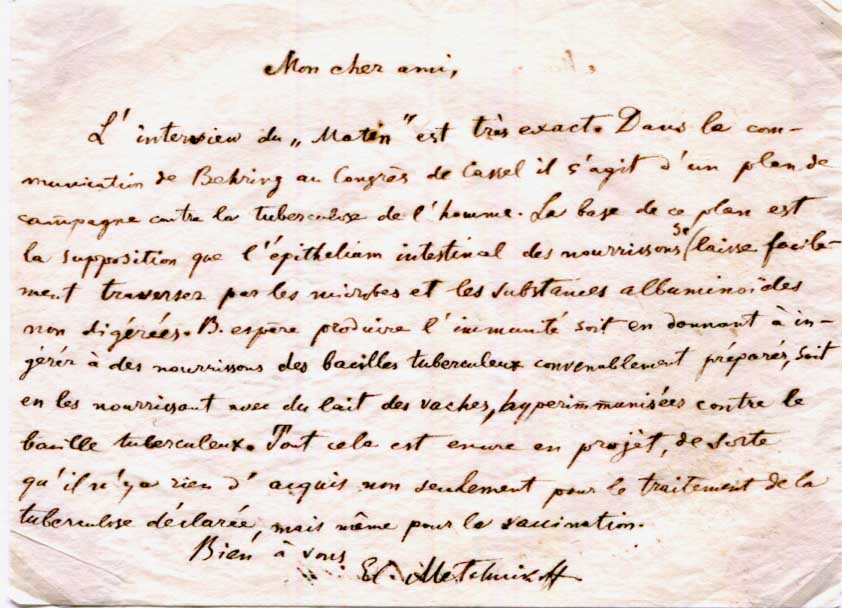 Mon cher ami,
L'interview du „Matin" est très exacte. Dans la com-
munication de Behring au Congrès de Cassel il s'agit d'un plan de
campagne contre la tuberculose de l'homme. La base de ce plan est
la supposition que l'épithelium intestinal des nourrissons se laisse facile-
ment traverser par les microbes et les substances albuminoïdes
non digérées. B. espère produire l'immunité soit en donnant à in-
gérér à des nourrissons des bacilles tuberculeux convenablement préparés, soit
en les nourrissant avec du lait des vaches, hyperimmunisées contre le
bacille tuberculeux. Tout cela est encore en projèt, de sorte
qu'il n'ya rien d'acquis non seulement pour le traitement de la
tuberculose déclarée, mais même pour la vaccination.
Bien à vous
El. Metchnikoff